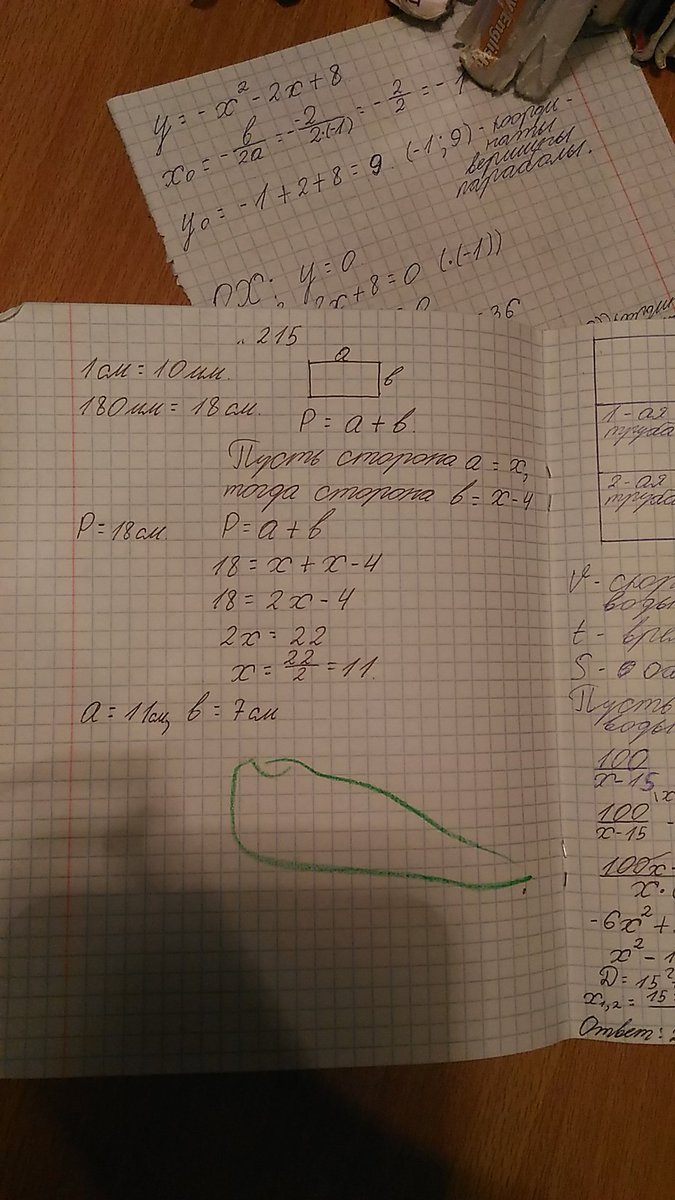 y = -x² - 2x + 8
x₀ = -в/2a = --2/2·(-1) = -2/2 = -1
y₀ = -1 + 2 + 8 = 9. (-1; 9) - коорди-
наты
вершины
параболы.
OX: y = 0
2x + 8 = 0 (·(-1))
36
215
1см = 10мм.
a
в
180мм = 18см.
P = a + в.
Пусть сторона a = x,
тогда сторона в = x - 4
P = 18см.
P = a + в
18 = x + x - 4
18 = 2x - 4
2x = 22
x = 22/2 = 11.
a = 11см, в = 7см
1-ая
труба
2-ая
труба
V - скор
воды
t - вре
S - оа
Пусть
воды
100
x-15
100
x-15
100x -
x·
-6x² +
x² - 1
D = 15²
x₁,₂ = 15
Ответ: 2